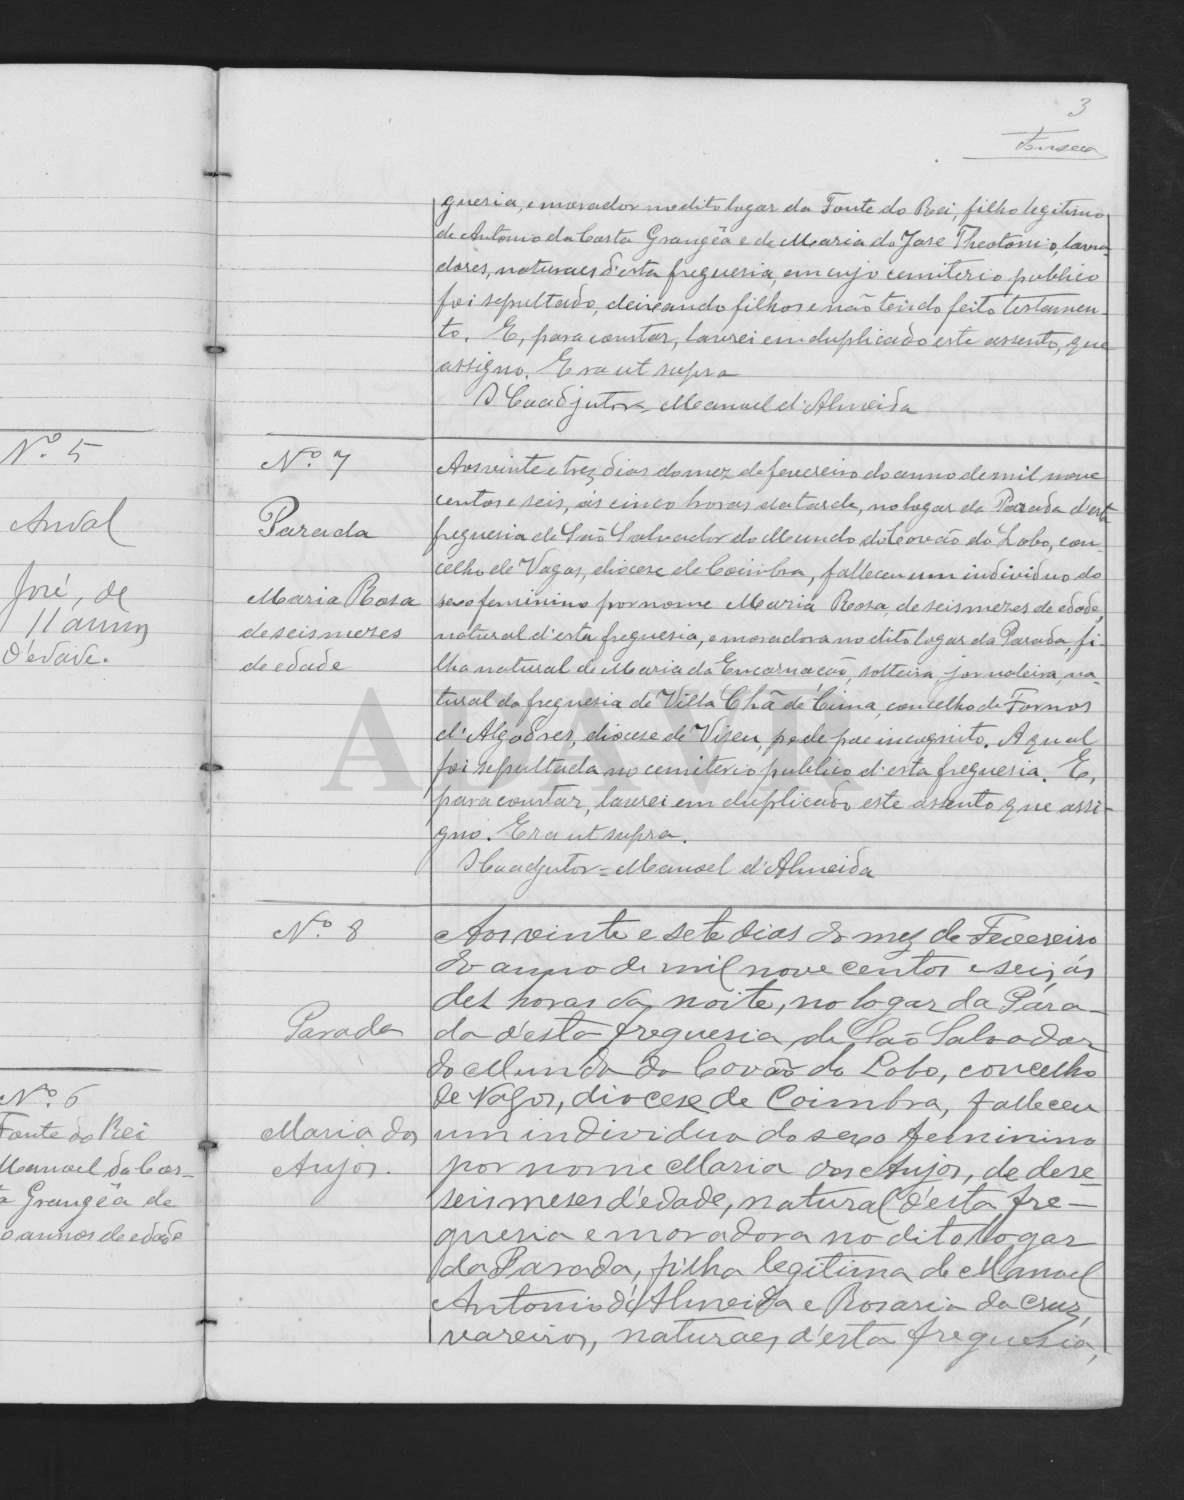 3
Fonseca
guesia, e morador no dito logar da Fonte do Rei, filho legitimo
de Antonio da Costa Grangêa e de Maria do José Theotonio, lavra-
dores, naturaes d'esta freguesia, em cujo cemiterio publico
foi sepultado, deixando filhos e não tendo feito testamen-
to. E, para constar, lavrei em duplicado este assento, que
assigno. Era ut supra
O Coadjutor Manuel d'Almeida
Nº 5
Anval
José, de
11 annos
d'edade.
Nº 6
Fonte do Rei
Manoel da Cos-
ta Grangêa de
annos de edade
Nº 7
Parada
Maria Rosa
de seis mezes
de edade
Aos vinte e trez dias do mez de fevereiro do anno de mil nove
centos e seis, ás cinco horas da tarde, no logar da Parada d'esta
freguesia de São Salvador do Mundo do Covão do Lobo, con-
celho de Vagos, diocese de Coimbra, falleceu um individuo do
sexo feminino por nome Maria Rosa, de seis mezes de edade,
natural d'esta freguesia, e moradora no dito logar da Parada, fi-
lha natural de Maria da Encarnação, solteira, jornaleira, na-
tural da freguesia de Villa Chã de Cima, concelho de Fornos
d'Algodres, diocese de Viseu, e de pae incognito. A qual
foi sepultada no cemiterio publico d'esta freguesia. E,
para constar, lavrei em duplicado este assento que assi-
gno. Era ut supra.
O Coadjutor = Manoel d'Almeida
ADAVR
Nº 8
Parada
Maria dos
Anjos.
Aos vinte e sete dias do mez de Fevereiro
do anno de mil nove centos e seis, ás
dez horas da noite, no logar da Para-
da d'esta freguesia de São Salvador
do Mundo do Covão do Lobo, concelho
de Vagos, diocese de Coimbra, falleceu
um individuo do sexo feminino
por nome Maria dos Anjos, de deze-
seis meses d'edade, natural d'esta fre-
guesia e moradora no dito logar
da Parada, filha legitima de Manoel
Antonio d'Almeida e Rosaria da Cruz,
vareiros, naturaes d'esta freguesia,